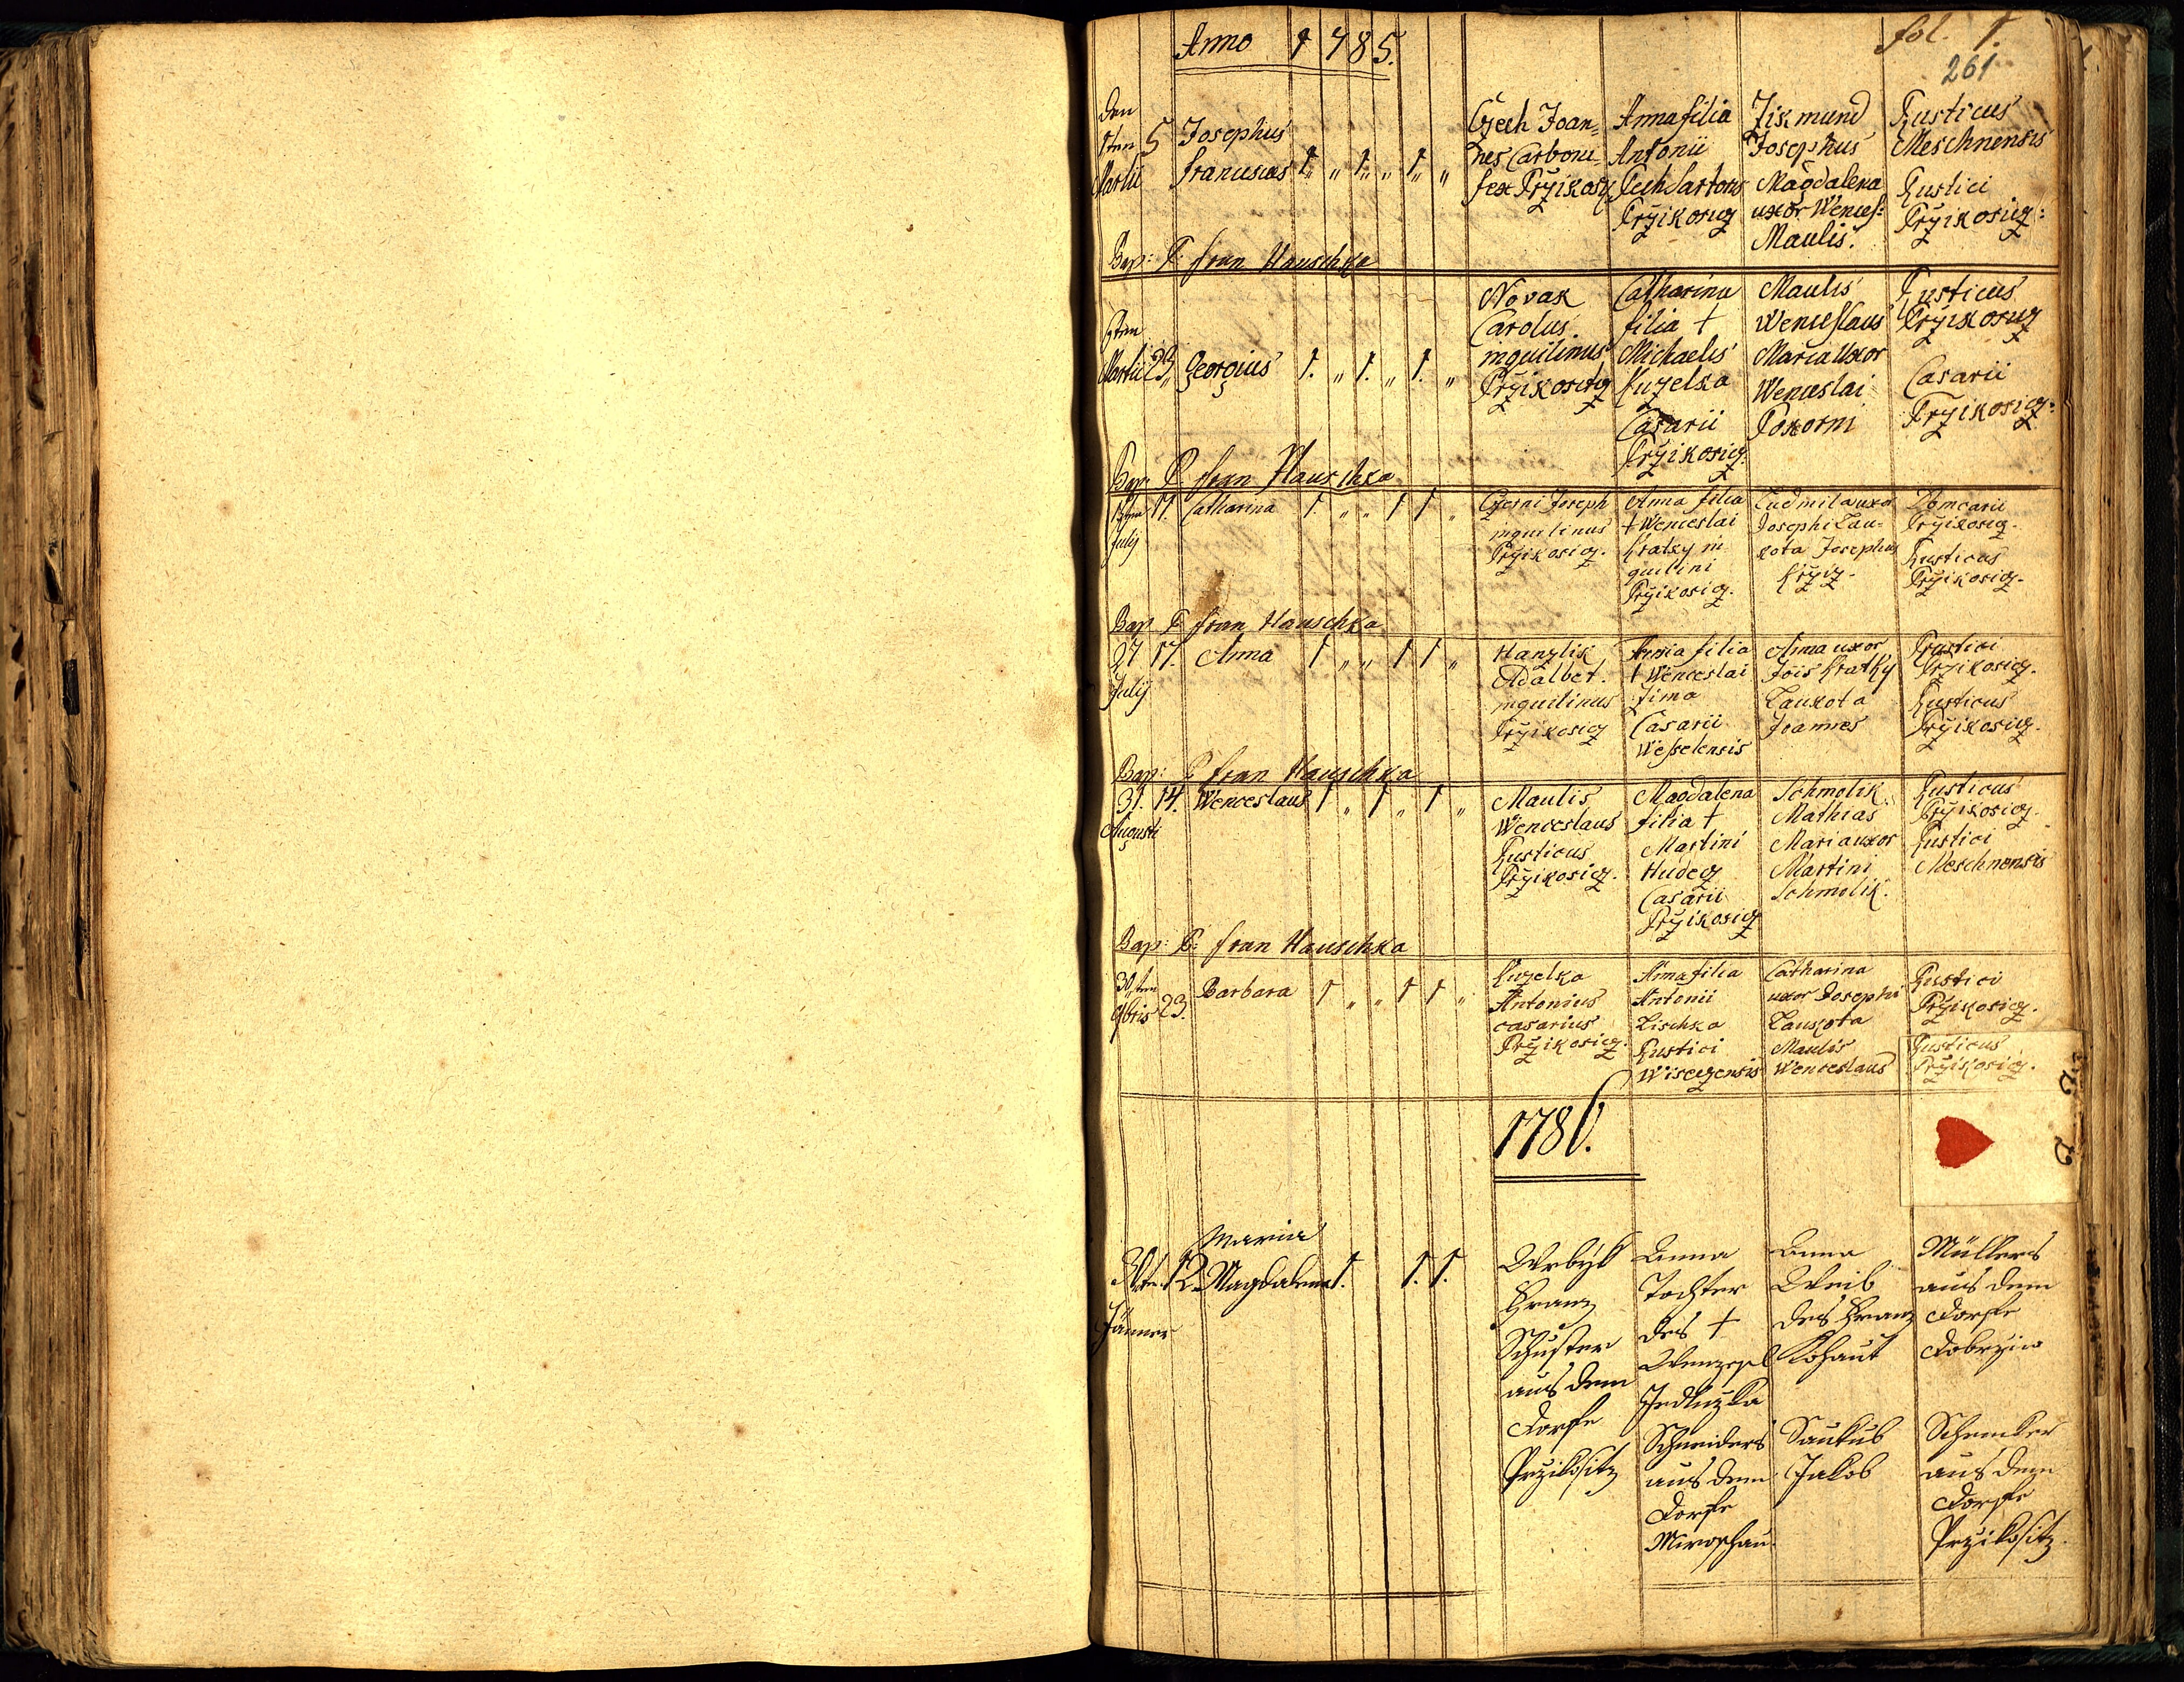 Anno 1785.
fol. 1.
261
Den
1ten
Martii
5
Josephus
Franciscus
1. „ 1. „ 1. „
Czech Joan-
nes Carboni-
fex Przikosicz
Anna filia
Antonii
Pech Sartoris
Przikosicz
Zikmund
Josephus
Magdalena
uxor Wences:
Maulis.
Rusticus
Meschnensis
Rustici
Przikosicz:
Bap: P. Fran Hauschka
Martii 23
Georgius
1. „ 1. „ 1. „
Novak
Carolus
inquilinus
Przikosicz
Catharina
filia †
Michaelis
Kuzelka
Casarii
Przikosicz.
Maulis
Wenceslaus
Maria Uxor
Wenceslai
Pokorni
Rusticus
Przikosicz
Casarii
Przikosicz:
Bap: P. Fran Hauschka
July
11.
Catharina
1 „ „ 1 1 „
Czerni Joseph
inquilinus
Przikosicz.
Anna filia
† Wenceslai
Kratky in
quilini
Przikosicz.
Ludmila uxor
Josephi Lau-
kota Josephus
Krziz.
Domcarii
Przikosicz.
Rusticus
Przikosicz.
Bap P. Fran Hauschka
27
July
17.
Anna
1 „ „ 1 1 „
Hanzlik
Adalbet.
inquilinus
Przikosicz
Anna filia
† Wenceslai
Zima
Casarii
Wesselensis
Anna uxor
Jois Kratky
Laukota
Joannes
Rustici
Przikosicz.
Rusticus
Przikosicz.
Bap: P Fran Hauschka
31.
Augusti
14.
Wenceslaus
1 „ 1 „ 1 „
Maulis
Wenceslaus
Rusticus
Przikosicz.
Magdalena
filia †
Martini
Hudecz
Casarii
Przikosicz
Schmolik
Mathias
Maria uxor
Martini
Schmolik.
Rusticus
Przikosicz.
Rustici
Meschnensis
Bap: P: Fran Hauschka
30ten
9bris
23.
Barbara
1 „ „ 1 1 „
Kuzelka
Antonius
casarius
Przikosicz.
Anna filia
Antonii
Lischka
Rustici
Wisegzensis
Catharina
uxor Josephi
Laukota
Maulis
Wenceslaus
Rustici
Przikosicz.
Rusticus
Przikosicz.
1786.
Jänner
12
Maria
Magdalena
1. 1. 1.
Wrbik
Franz
Schuster
aus dem
Dorfe
Przikositz
Anna
Tochter
des †
Wenzesl
Jedliczka
Schneiders
aus dem
Dorfe
Miroschau
Anna
Weib
des Franz
Kohaut
Saukub
Jakob
Müllers
aus dem
Dorfe
Dobrziw
Schenker
aus dem
Dorfe
Przikositz.